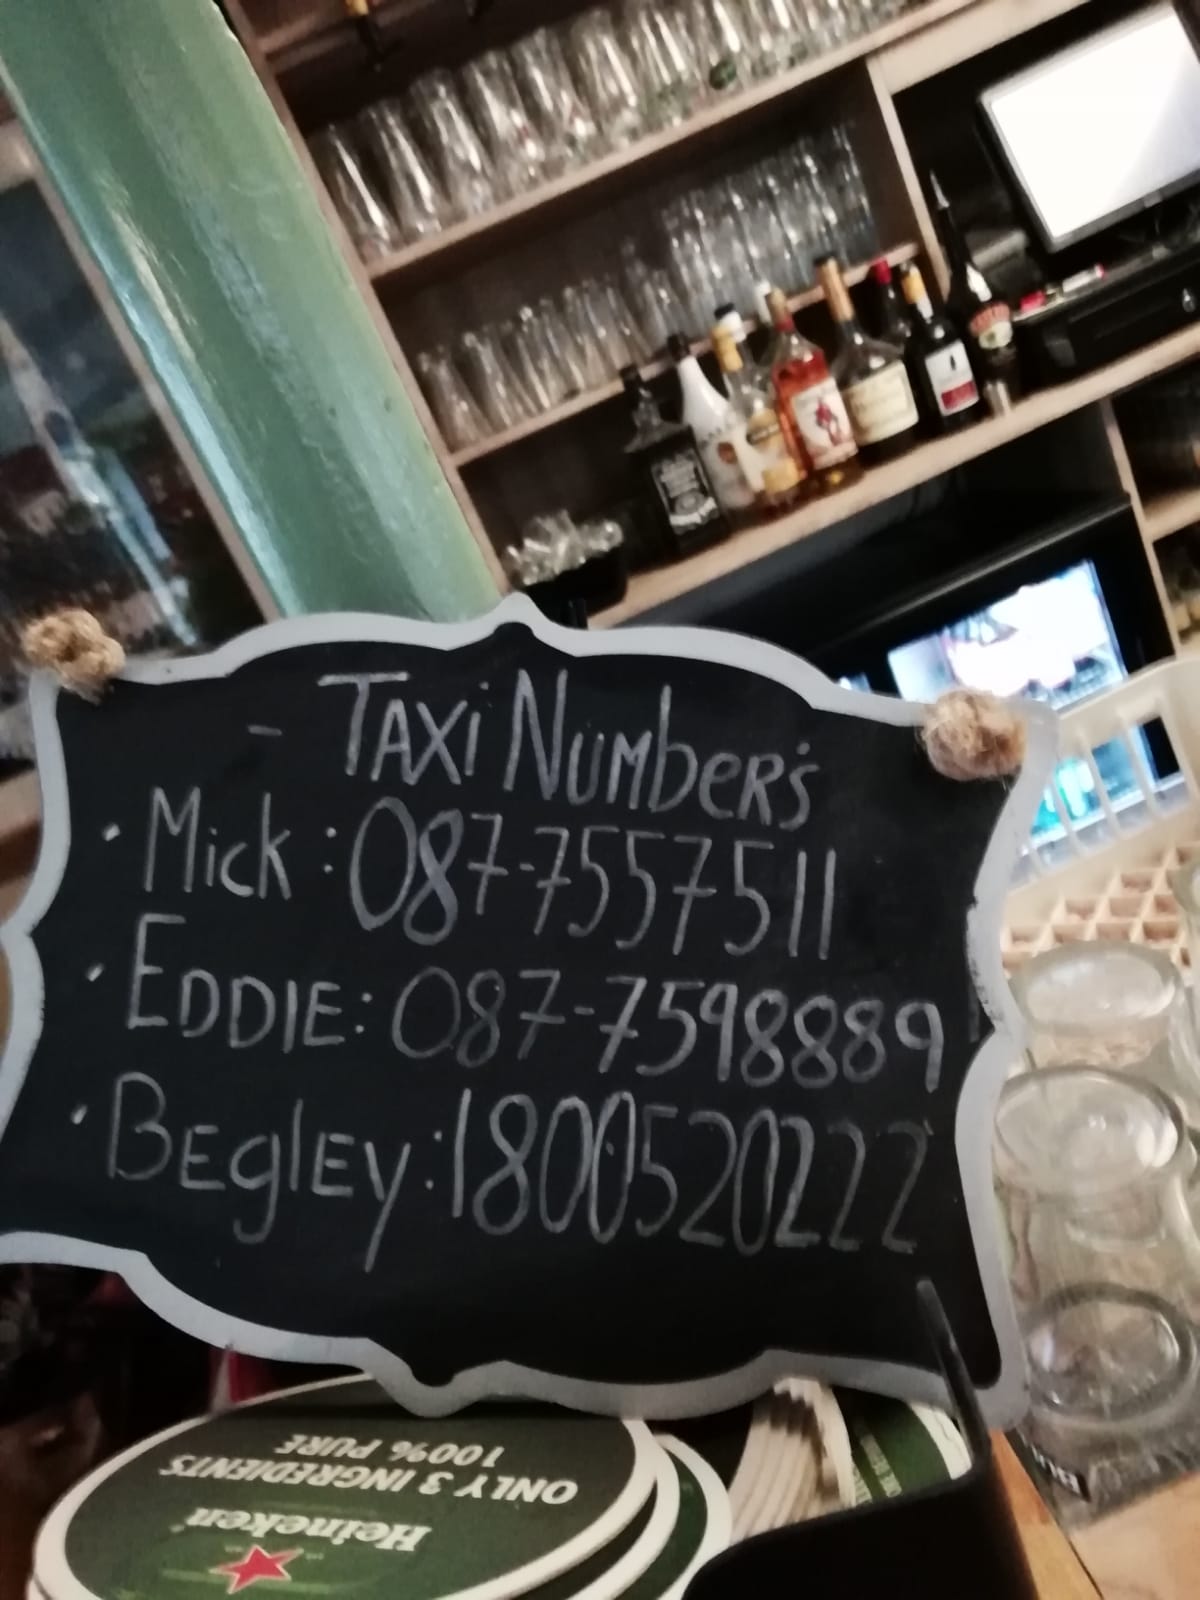 - TAXi NUMbeRS
• Mick : 087-7557511
• EDDIE: 087-7598889
• BEglEy: 1800520222
ONLY 3 INGREDIENTS
100% PURE
Heineken